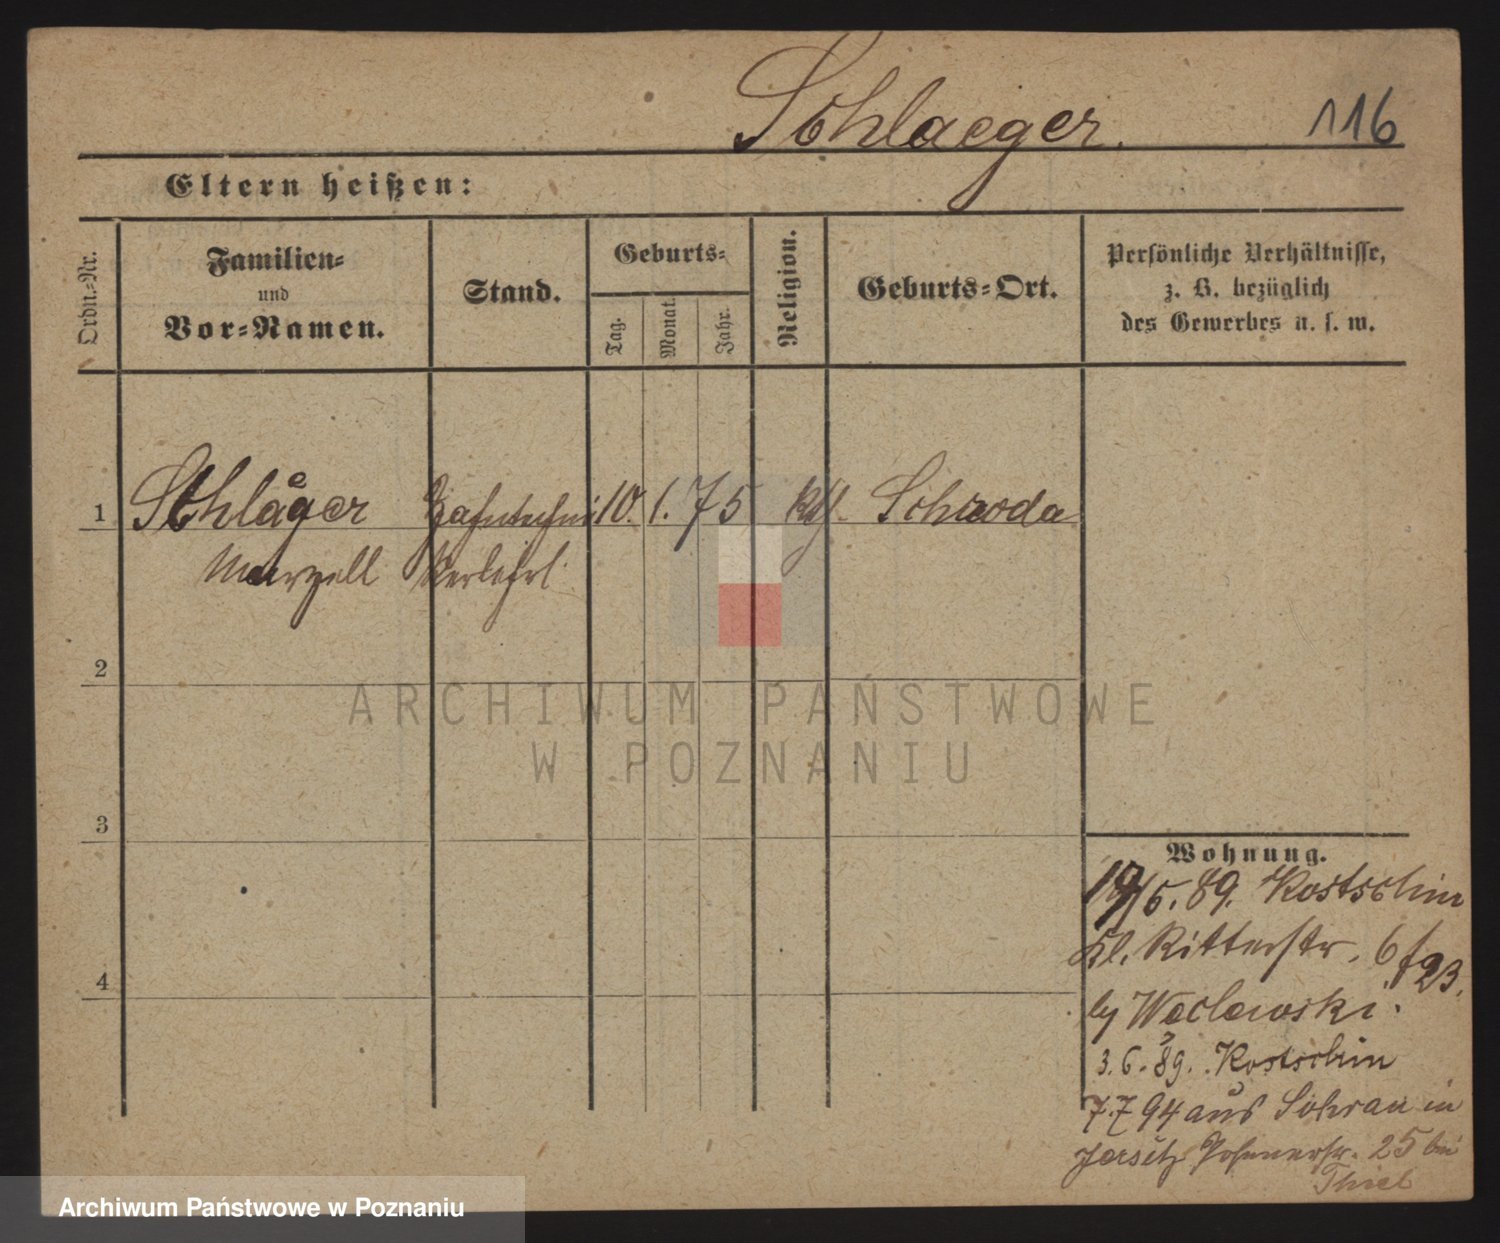 Schlaeger.
116
Eltern heißen:
Ordn.-Nr.
Familien-
und
Vor-Namen.
Stand.
Geburts-
Tag.
Monat.
Jahr.
Religion.
Geburts-Ort.
Persönliche Verhältnisse,
z. B. bezüglich
des Gewerbes u. s. w.
1 Schlaeger 10. 1. 75 kth. Schroda
Marzell
2
3
4
ARCHIWUM PAŃSTWOWE
W POZNANIU
Wohnung.
19/5. 89. Kostschin
Kl. Ritterstr. 6 f 23.
by Weclewski.
3. 6. 89. Kostschin
7.7 94 aus Sohrau in
Jersitz Posenerstr. 25 bei
Thiel
Archiwum Państwowe w Poznaniu